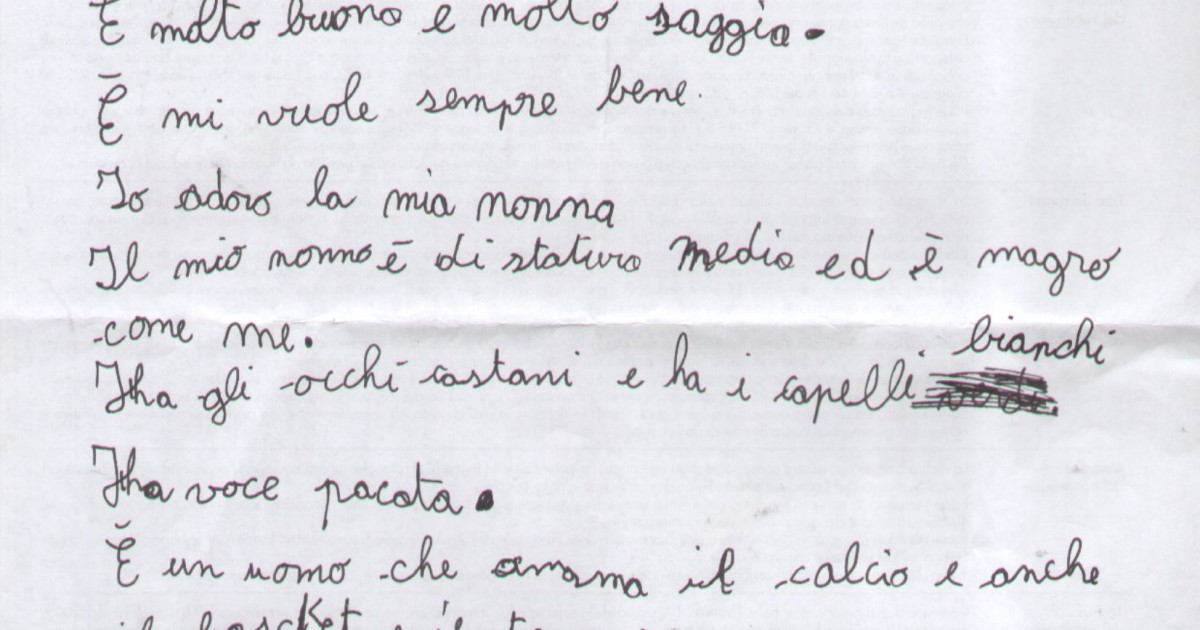 È molto buono e molto saggia.
È mi vuole sempre bene.
Io adoro la mia nonna
Il mio nonno è di stativro medio ed è magro
come me.
Ha gli occhi castani e ha i capelli bianchi
Ha voce pacata.
È un uomo che amama il calcio e anche
il bascket